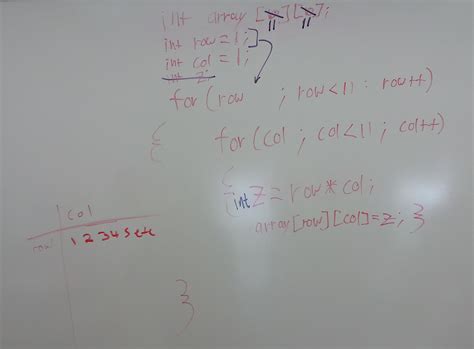 int array [10][10];
11 11
int row = 1;
int col = 1;
int z;
for (row ; row<11 : row++)
{ for (col ; col<11 ; col++)
{ int z = row * col;
array[row][col] = z; }
col
row 1 2 3 4 5 etc
}